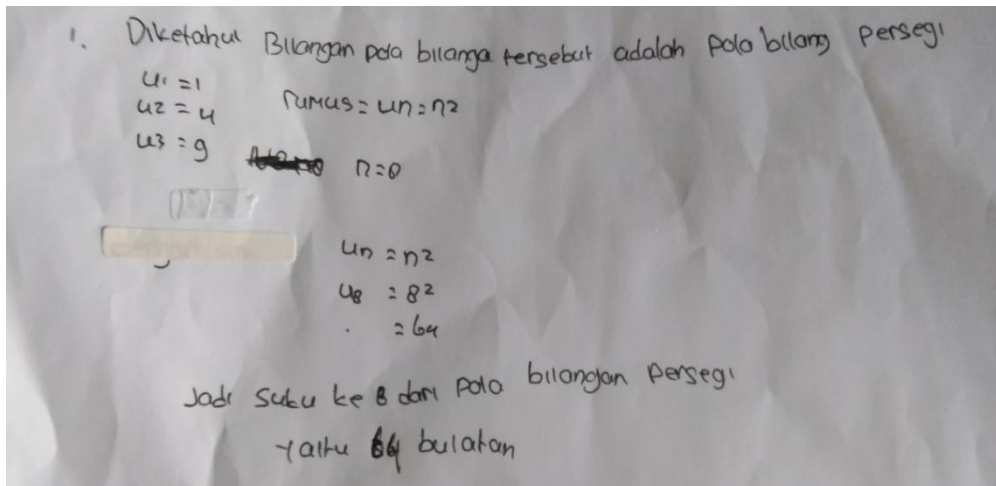 1. Diketahui Bilangan pola bilanga tersebut adalah pola bilang persegi
U1 = 1
U2 = 4 rumus = Un = n2
U3 = 9 n = 8
Un = n2
U8 = 8²
= 64
Jadi suku ke 8 dari pola bilangan persegi
yaitu 64 bulatan